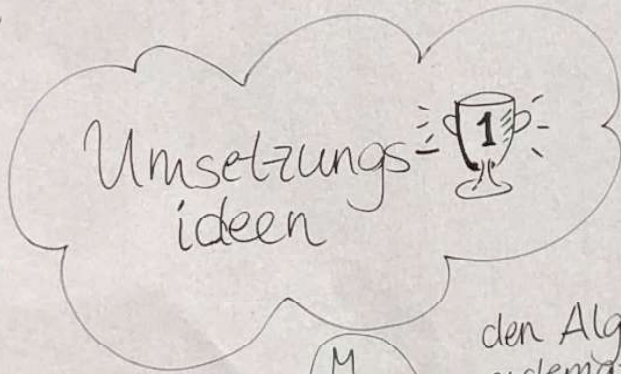 Umsetzungs-
ideen
1
M
den Alg